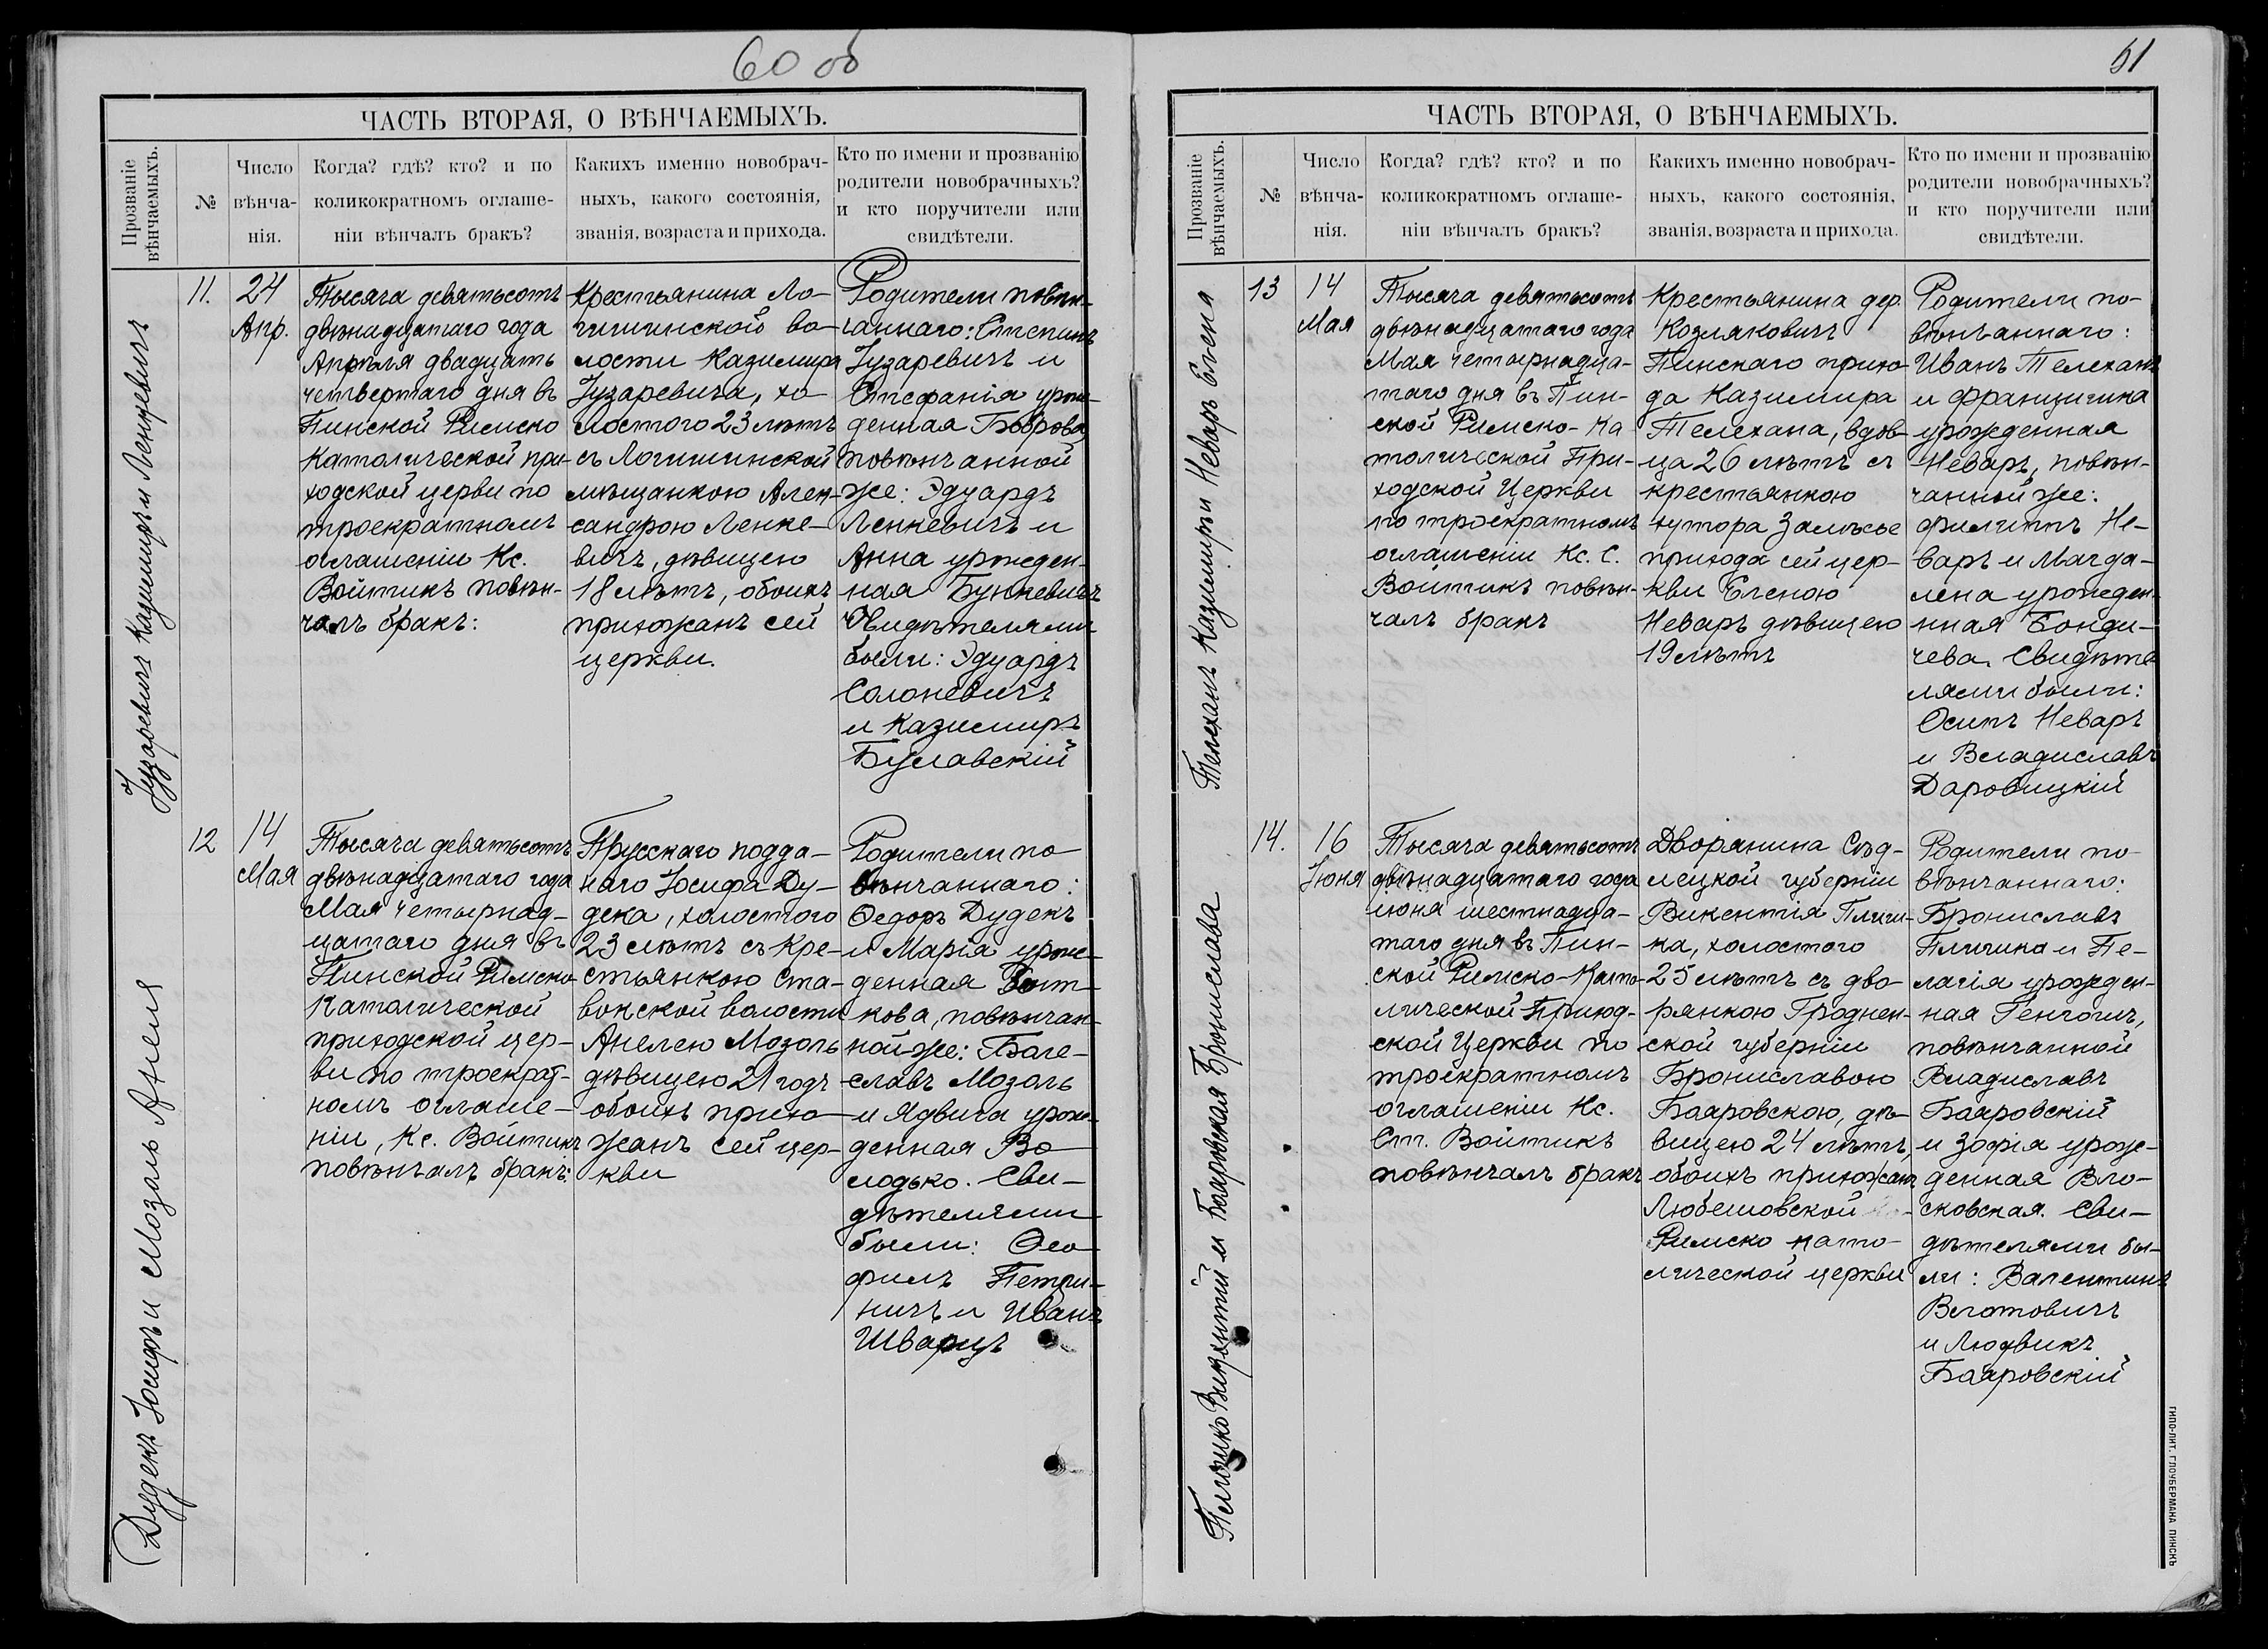 60 об
ЧАСТЬ ВТОРАЯ, О ВѢНЧАЕМЫХЪ.
Прозваніе
вѣнчаемыхъ.
№
Число
вѣнча-
нія.
Когда? гдѣ? кто? и по
коликократномъ оглаше-
ніи вѣнчалъ бракъ?
Какихъ именно новобрач-
ныхъ, какого состоянія,
званія, возраста и прихода.
Кто по имени и прозванію
родители новобрачныхъ?
и кто поручители или
свидѣтели.
Гузаревичъ Казимиръ и Ленкевичъ
11.
24
Апр.
Тысяча девятьсотъ
двѣнадцатаго года
Апрѣля двадцать
четвертаго дня въ
Пинской Римско
Католической при-
ходской церви по
троекратномъ
оглашеніи Кс.
Войтикъ повѣн-
чалъ бракъ:
Крестьянина Ло-
гишинской во-
лости Казимира
Гузаревича, хо-
лостого 23 лѣтъ
съ Логишинской
мѣщанкою Алек-
сандрою Ленке-
вичъ, дѣвицею
18 лѣтъ, обоихъ
прихожанъ сей
церкви.
Родители повѣн-
чаннаго: Степанъ
Гузаревичъ и
Стефанія урож-
денная Боброва,
повѣнчанной
же: Эдуардъ
Ленкевичъ и
Анна урожден-
ная Букневичъ
Свидѣтелями
были: Эдуардъ
Солоневичъ
и Казимиръ
Буславскій
Дудекъ Іосифъ и Мозоль Анеля
12
14
Мая
Тысяча девятьсотъ
двѣнадцатаго года
Мая четырнад-
цатаго дня въ
Пинской Римско
Католической
приходской цер-
ви по троекрат-
номъ оглаше-
ніи, Кс. Войтикъ
повѣнчалъ бракъ:
Прусскаго подда-
наго Іосифа Ду-
дека, холостого
23 лѣтъ съ Кре-
стьянкою Ста-
вокской волости
Анелею Мозоль
дѣвицею 21 годъ
обоихъ прихо-
жанъ сей цер-
кви
Родители по
вѣнчаннаго:
Ѳедоръ Дудекъ
и Марія урож-
денная Вонт-
кова, повѣнчан-
ной-же: Боле-
славъ Мозоль
и Ядвига урож-
денная Во
лодько. Сви-
дѣтелями
были: Ѳео
филъ Петри-
ничъ и Иванъ
Шварцъ
61
ЧАСТЬ ВТОРАЯ, О ВѢНЧАЕМЫХЪ.
Прозваніе
вѣнчаемыхъ.
№
Число
вѣнча-
нія.
Когда? гдѣ? кто? и по
коликократномъ оглаше-
ніи вѣнчалъ бракъ?
Какихъ именно новобрач-
ныхъ, какого состоянія,
званія, возраста и прихода.
Кто по имени и прозванію
родители новобрачныхъ?
и кто поручители или
свидѣтели.
Телеханъ Казимиръ и Неваръ Елена
13
14
Мая
Тысяча девятьсотъ
двѣнадцатаго года
Мая четырнадца-
таго дня въ Пин-
ской Римско-Ка
толической При-
ходской Церкви
по троекратномъ
оглашеніи Кс. С.
Войтикъ повѣн-
чалъ бракъ
Крестьянина дер.
Козляковичъ
Пинскаго прихо-
да Казимира
Телехана, вдов-
ца 26 лѣтъ съ
крестьянкою
хутора Замосье
прихода сей цер-
кви Еленою
Неваръ дѣвицею
19 лѣтъ
Родители по-
вѣнчаннаго:
Иванъ Телеханъ
и Францишка
урожденная
Неваръ, повѣн-
чанной же:
Филиппъ Не-
варъ и Магда-
лена урожден-
нная Бонди-
чева. Свидѣте-
лями были:
Осипъ Неваръ
и Владиславъ
Даровицкій
и Бояровская Бронислава
14.
16
Іюня
Тысяча девятьсотъ
двѣнадцатаго года
июня шестнадца-
таго дня въ Пин-
ской Римско-Като-
лической Приход-
ской Церкви по
троекратномъ
оглашеніи Кс.
Ст. Войтикъ
повѣнчалъ бракъ
Дворянина Сѣд-
лецкой губерніи
Викентія
ка, холостого
25 лѣтъ съ дво-
рянкою Гроднен-
ской губерніи
Брониславою
Бояровскою, дѣ-
вицею 24 лѣтъ,
обоихъ прихожанъ
Любешовской
Римско като-
лической церкви
Родители по-
вѣнчаннаго:
Брониславъ
и Пе-
лагія урожден-
ная
повѣнчанной
Владиславъ
Бояровскій
и Зофія урож-
денная Вло-
сковская. Сви-
дѣтелями бы-
ли: Валентинъ
Влотовичъ
и Людвикъ
Бояровскій
ТИПО-ЛИТ. ГЛОУБЕРМАНА ПИНСКЪ